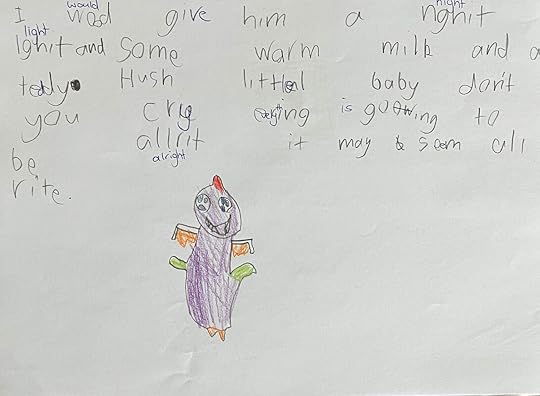 would night
I wod give him a nghit
light
lghit and some warm milk and a
tedy Hush littel baby don't
you cry everything is goowing to
allrit it may be seem all
alright
be
rite.